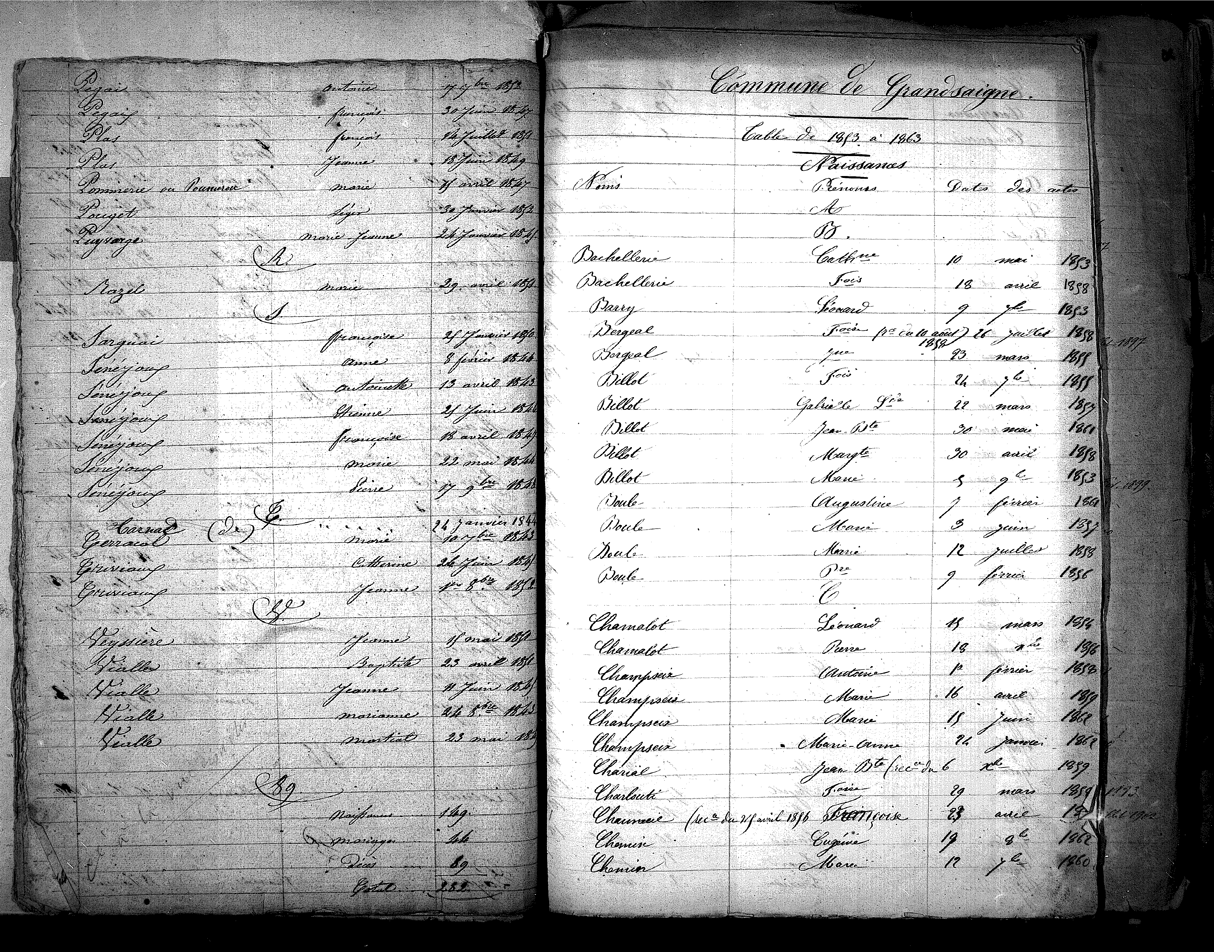 Pegai antoine 7 7bre 1852
Legais françois 30 Juin 1847
Plas françois 14 Juillet
Plas Jeanne 18 Juin 1849
Pommerie ou Poumerie marie avril 1847
Pouget Léger 30 Janvier 1852
Puyvarge marie Jeanne 24 Janvier
R
Razet marie 29 avril
S
Sarguai françoise 25 Janvier
Sénéjoux anne 8 février
Sénéjoux antoinette 13 avril 1843
Sénéjoux Etienne 25 Juin
Sénéjoux françoise 18 avril
Sénéjoux marie 22 mai
Sénéjoux Pierre 17 9bre
T
Tarnac (de) " " " " 24 Janvier 1844
Terracol marie 10 7bre 1843
Truviaux Catherine 24 Juin
Truviaux Jeanne 1er 8bre 1852
V
Veyssière Jeanne 15 mai
Vialle Baptiste 23 avril
Vialle Jeanne 11 Juin
Vialle marianne 24 8bre 1843
Vialle martial 23 mai
89
naissances 149
mariages 44
Décès 89
Total 282
Commune de Grandsaigne.
Table de 1853 à 1863
Naissances
Noms Prénoms Dates des actes
A
B.
Bachellerie Cathne 10 mai 1853
Bachellerie Fois 18 avril 1858
Barry Léonard 9 7bre 1853
Bergeal Foise (rec du 10 août 1858) 26 juillet 1858
Bergeal Jne 23 mars 1855
Billot Fois 24 7bre 1855
Billot Gabrielle 22 mars
Billot Jean Bte 30 mai 1861
Billot Margte 30 avril 1858
Billot Marie 5 9bre 1853
Boule Augustine 7 février
Boule Marie 3 juin 1857
Boule Marie 12 juillet 1858
Boule Pre 9 février 1856
C
Chamalot Léonard 15 mars
Chamalot Pierre 18
Champseix Antoine 1er février 1858
Champseix Marie 16 avril 1859
Champseix Marie 15 juin
Champseix Marie-Anne 24 janvier
Charial Jean Bte (recon du 6 Xbre 1859
Charlouti Foise 29 mars 1859
Chaumeil (recon du 25 avril 1856 Françoise 23 avril
Chemin Eugénie 19 8bre 1862
Chemin Marie 12 7bre 1860